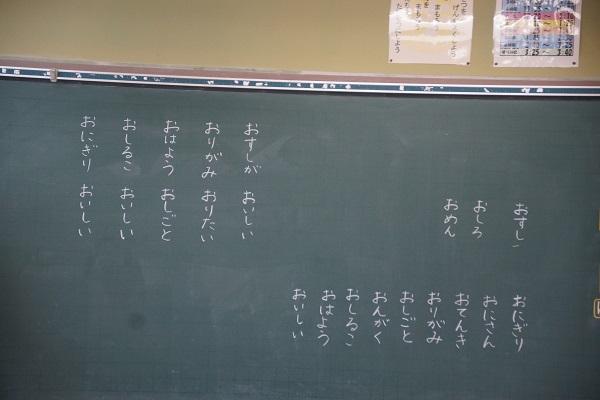 おすし
おしろ
おめん
おにぎり
おにさん
おてんき
おりがみ
おしごと
おんがく
おしるこ
おはよう
おいしい
おすしが おいしい
おりがみ おりたい
おはよう おしごと
おしるこ おいしい
おにぎり おいしい